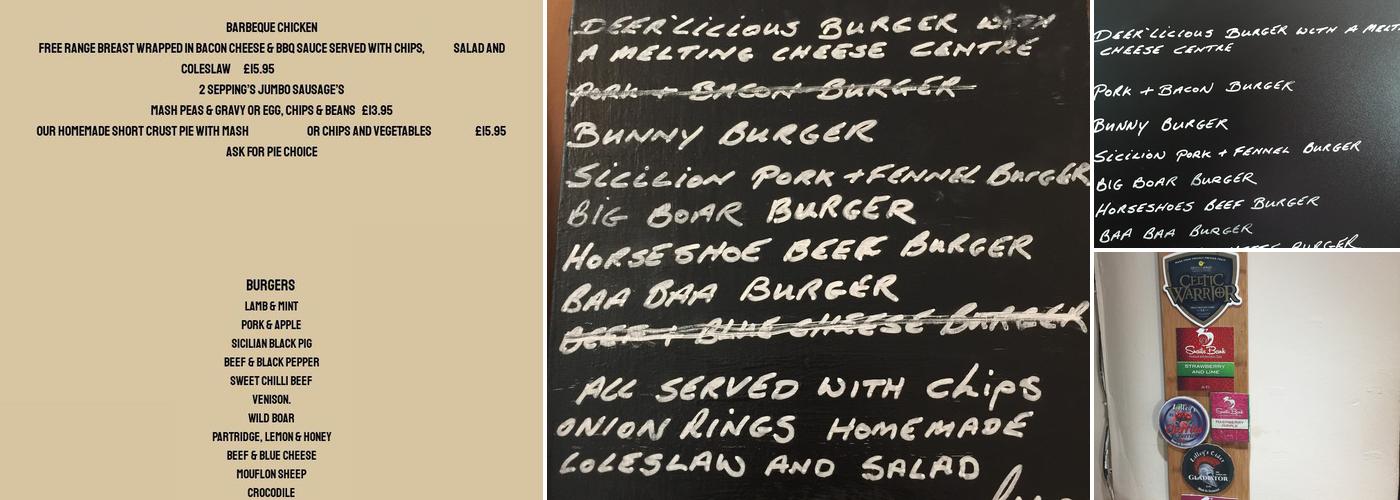 BARBEQUE CHICKEN
FREE RANGE BREAST WRAPPED IN BACON CHEESE & BBQ SAUCE SERVED WITH CHIPS, SALAD AND
COLESLAW £15.95
2 SEPPING'S JUMBO SAUSAGE'S
MASH PEAS & GRAVY OR EGG, CHIPS & BEANS £13.95
OUR HOMEMADE SHORT CRUST PIE WITH MASH OR CHIPS AND VEGETABLES £15.95
ASK FOR PIE CHOICE
BURGERS
LAMB & MINT
PORK & APPLE
SICILIAN BLACK PIG
BEEF & BLACK PEPPER
SWEET CHILLI BEEF
VENISON.
WILD BOAR
PARTRIDGE, LEMON & HONEY
BEEF & BLUE CHEESE
MOUFLON SHEEP
CROCODILE
DEER'LICIOUS BURGER WITH
A MELTING CHEESE CENTRE
PORK + BACON BURGER
BUNNY BURGER
SICILION PORK + FENNEL BURGER
BIG BOAR BURGER
HORSESHOE BEEF BURGER
BAA BAA BURGER
BEEF + BLUE CHEESE BURGER
ALL SERVED WITH CHIPS
ONION RINGS HOMEMADE
COLESLAW AND SALAD
DEER'LICIOUS BURGER WITH A MELT
CHEESE CENTRE
PORK + BACON BURGER
BUNNY BURGER
SICILION PORK + FENNEL BURGER
BIG BOAR BURGER
HORSESHOES BEEF BURGER
BAA BAA BURGER
BURGER
CELTIC
WARRIOR
Snails Bank
STRAWBERRY
AND LIME
Snails Bank
Lilley's
Lilley's Cider
GLADIATOR